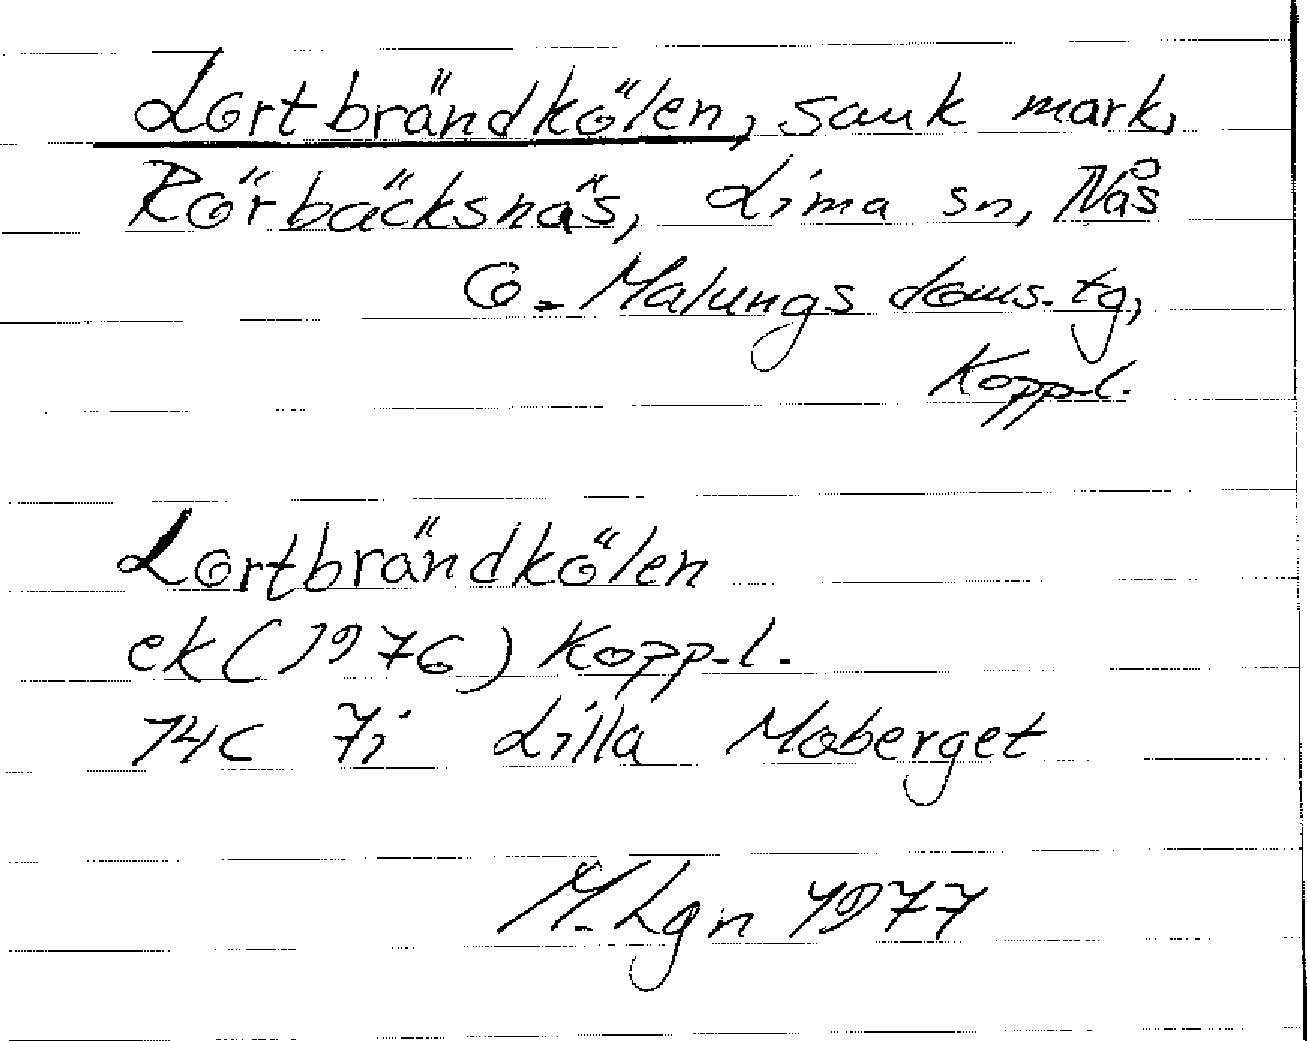 Lortbrändkölen, sank mark,
Rörbäcksnäs, Lima sn, Nås
o. Malungs doms. tg,
Kopp.l.
Lortbrändkölen
ek (1976) Kopp.l.
14C 7i Lilla Moberget
M. Lgn 1977